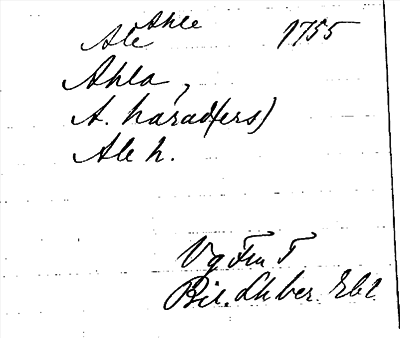 Ahle
Ale 1755
Ahla,
A. härad(ers)
Ale h.
Vg Fm T
Bil. Lh ber.